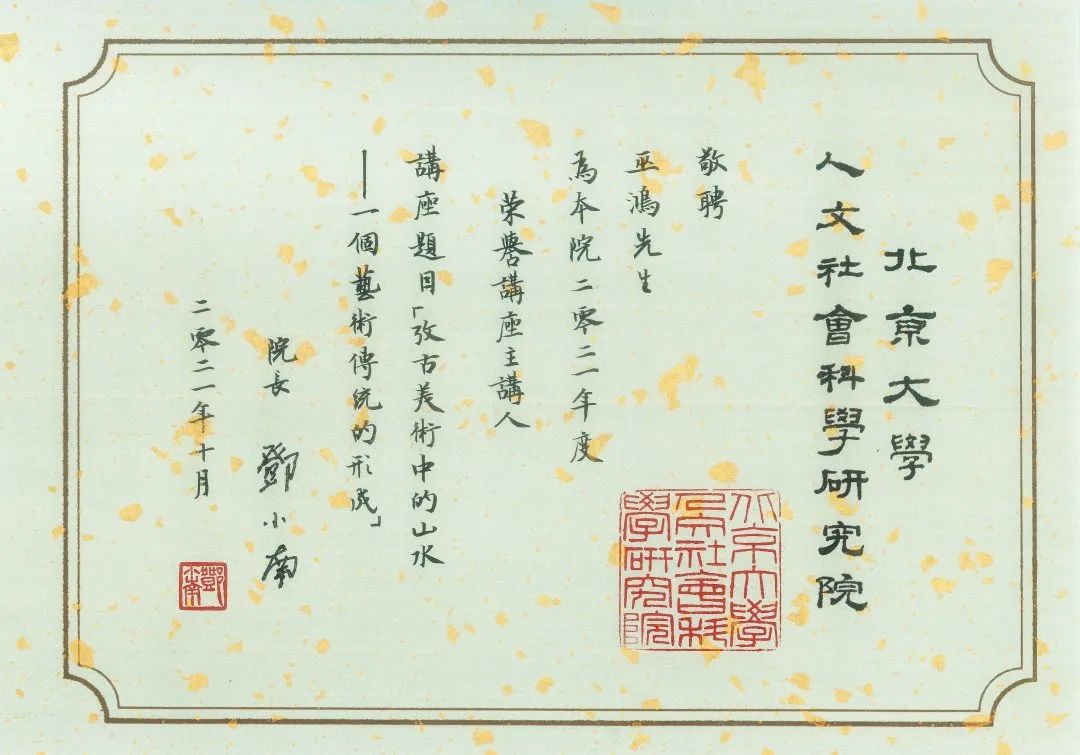 北京大學
人文社會科學研究院
敬聘
巫鴻先生
為本院二零二一年度
荣譽講座主講人
講座題目「攷古美術中的山水
——一個藝術傳統的形成」
院長 鄧小南
二零二一年十月
北京大學
人文社會科
學研究院
鄧小南